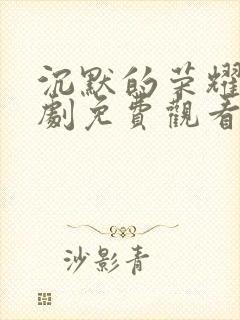 沉默的荣耀
劇免費觀看
沙影青